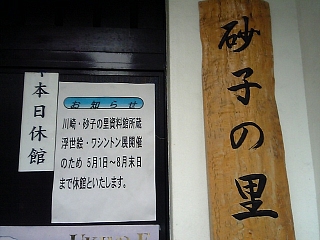 砂子の里
本日休館
お知らせ
川崎・砂子の里資料館所蔵
浮世絵・ワシントン展開催
のため 5月1日～8月末日
まで休館といたします。